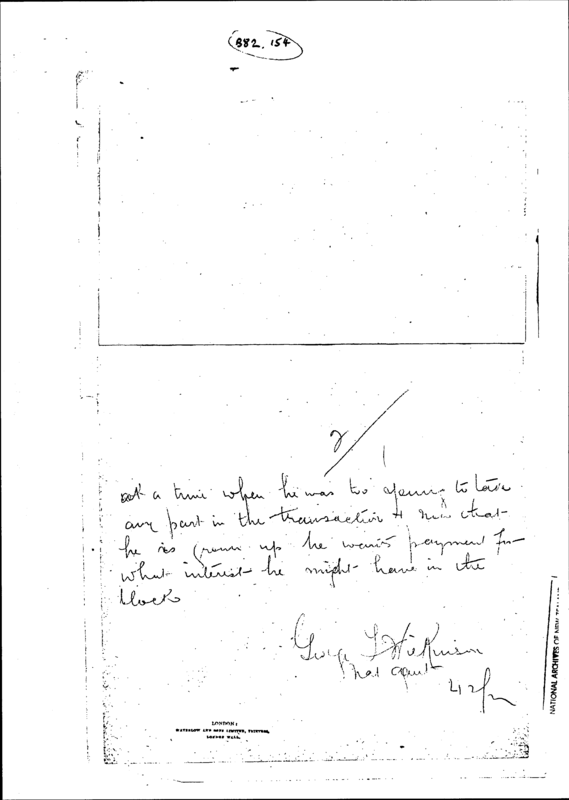 B82. 154
2/
at a time when he was too young to take
any part in the transaction & now that
he is grown up he wants payment for
what interest he might have in the
block
George
LONDON:
WATERLOW AND SONS LIMITED, PRINTERS,
LONDON WALL.
NATIONAL ARCHIVES OF NEW ZEALAND